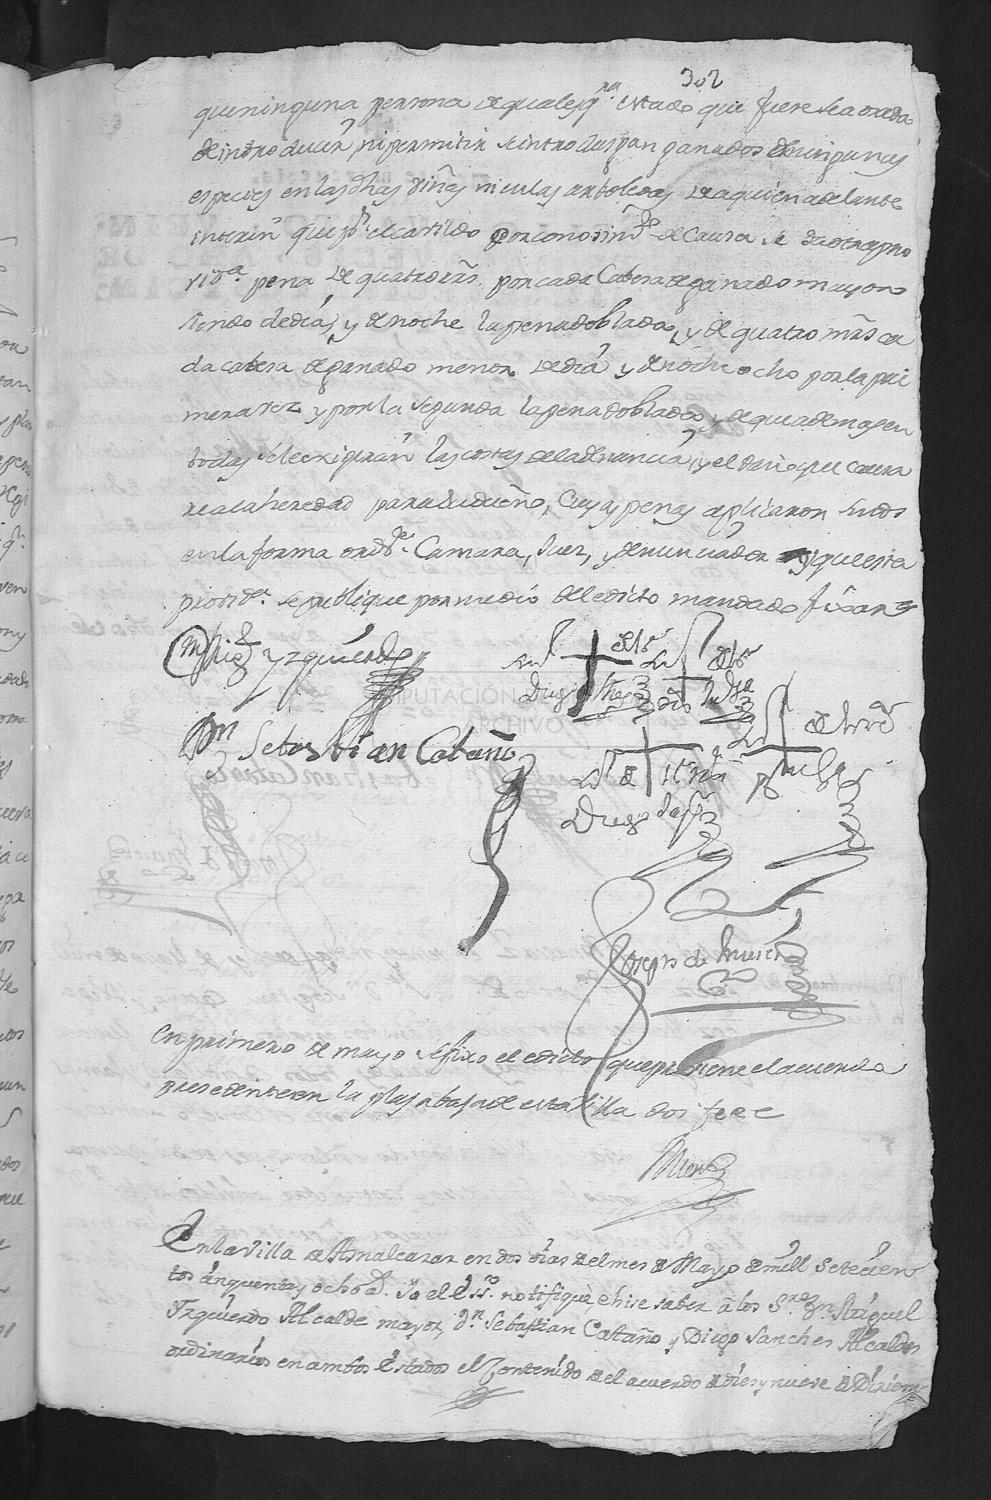 302
que ninguna persona de qualesq.ra estado que fuere sea osado
de introducir, ni permitir se introduspan ganados de ningunas
especies en las dhas viñas ni en las arboledas de aqui en adelante
interin que p.r el cavildo por conosim.to de causa se da otra pro
vid.a pena de quatro rs. por cada Cabesa de ganado mayor
siendo de dia, y de noche la pena doblada, y de quatro mrs ca
da cabesa de ganado menor de dia y de noche ocho por la pri
mera vez y por la segunda la pena doblada, y de que ademas en
todas se le exigiran las costas de la denuncia, y el daño que causa
re a la heredad para su dueño, Cuyas penas aplicaron sus mds
en la forma ord.a Camara, Juez, y denunciador y que esta
provid.a se publique por medio del edicto mandado fixar
Mig.l Yzquierdo
D.n Sebastian Cataño
Diego
Joseph de
En primero de mayo se fixo el edicto que previene el acuerdo
presedente en la plasa baja de esta villa doi fee
En la Villa de Asnalcasar en dos dias del mes de Mayo de mill setecien
tos cinquenta y ocho a.s Yo el Ess.no notifique e hise saver a los S.res D.n Miguel
Yzquierdo Alcalde mayor, D.n Sebastian Cataño, y Diego Sanches Alcaldes
ordinarios en ambos Estados el Contenido del acuerdo de dies y nueve de Diciem